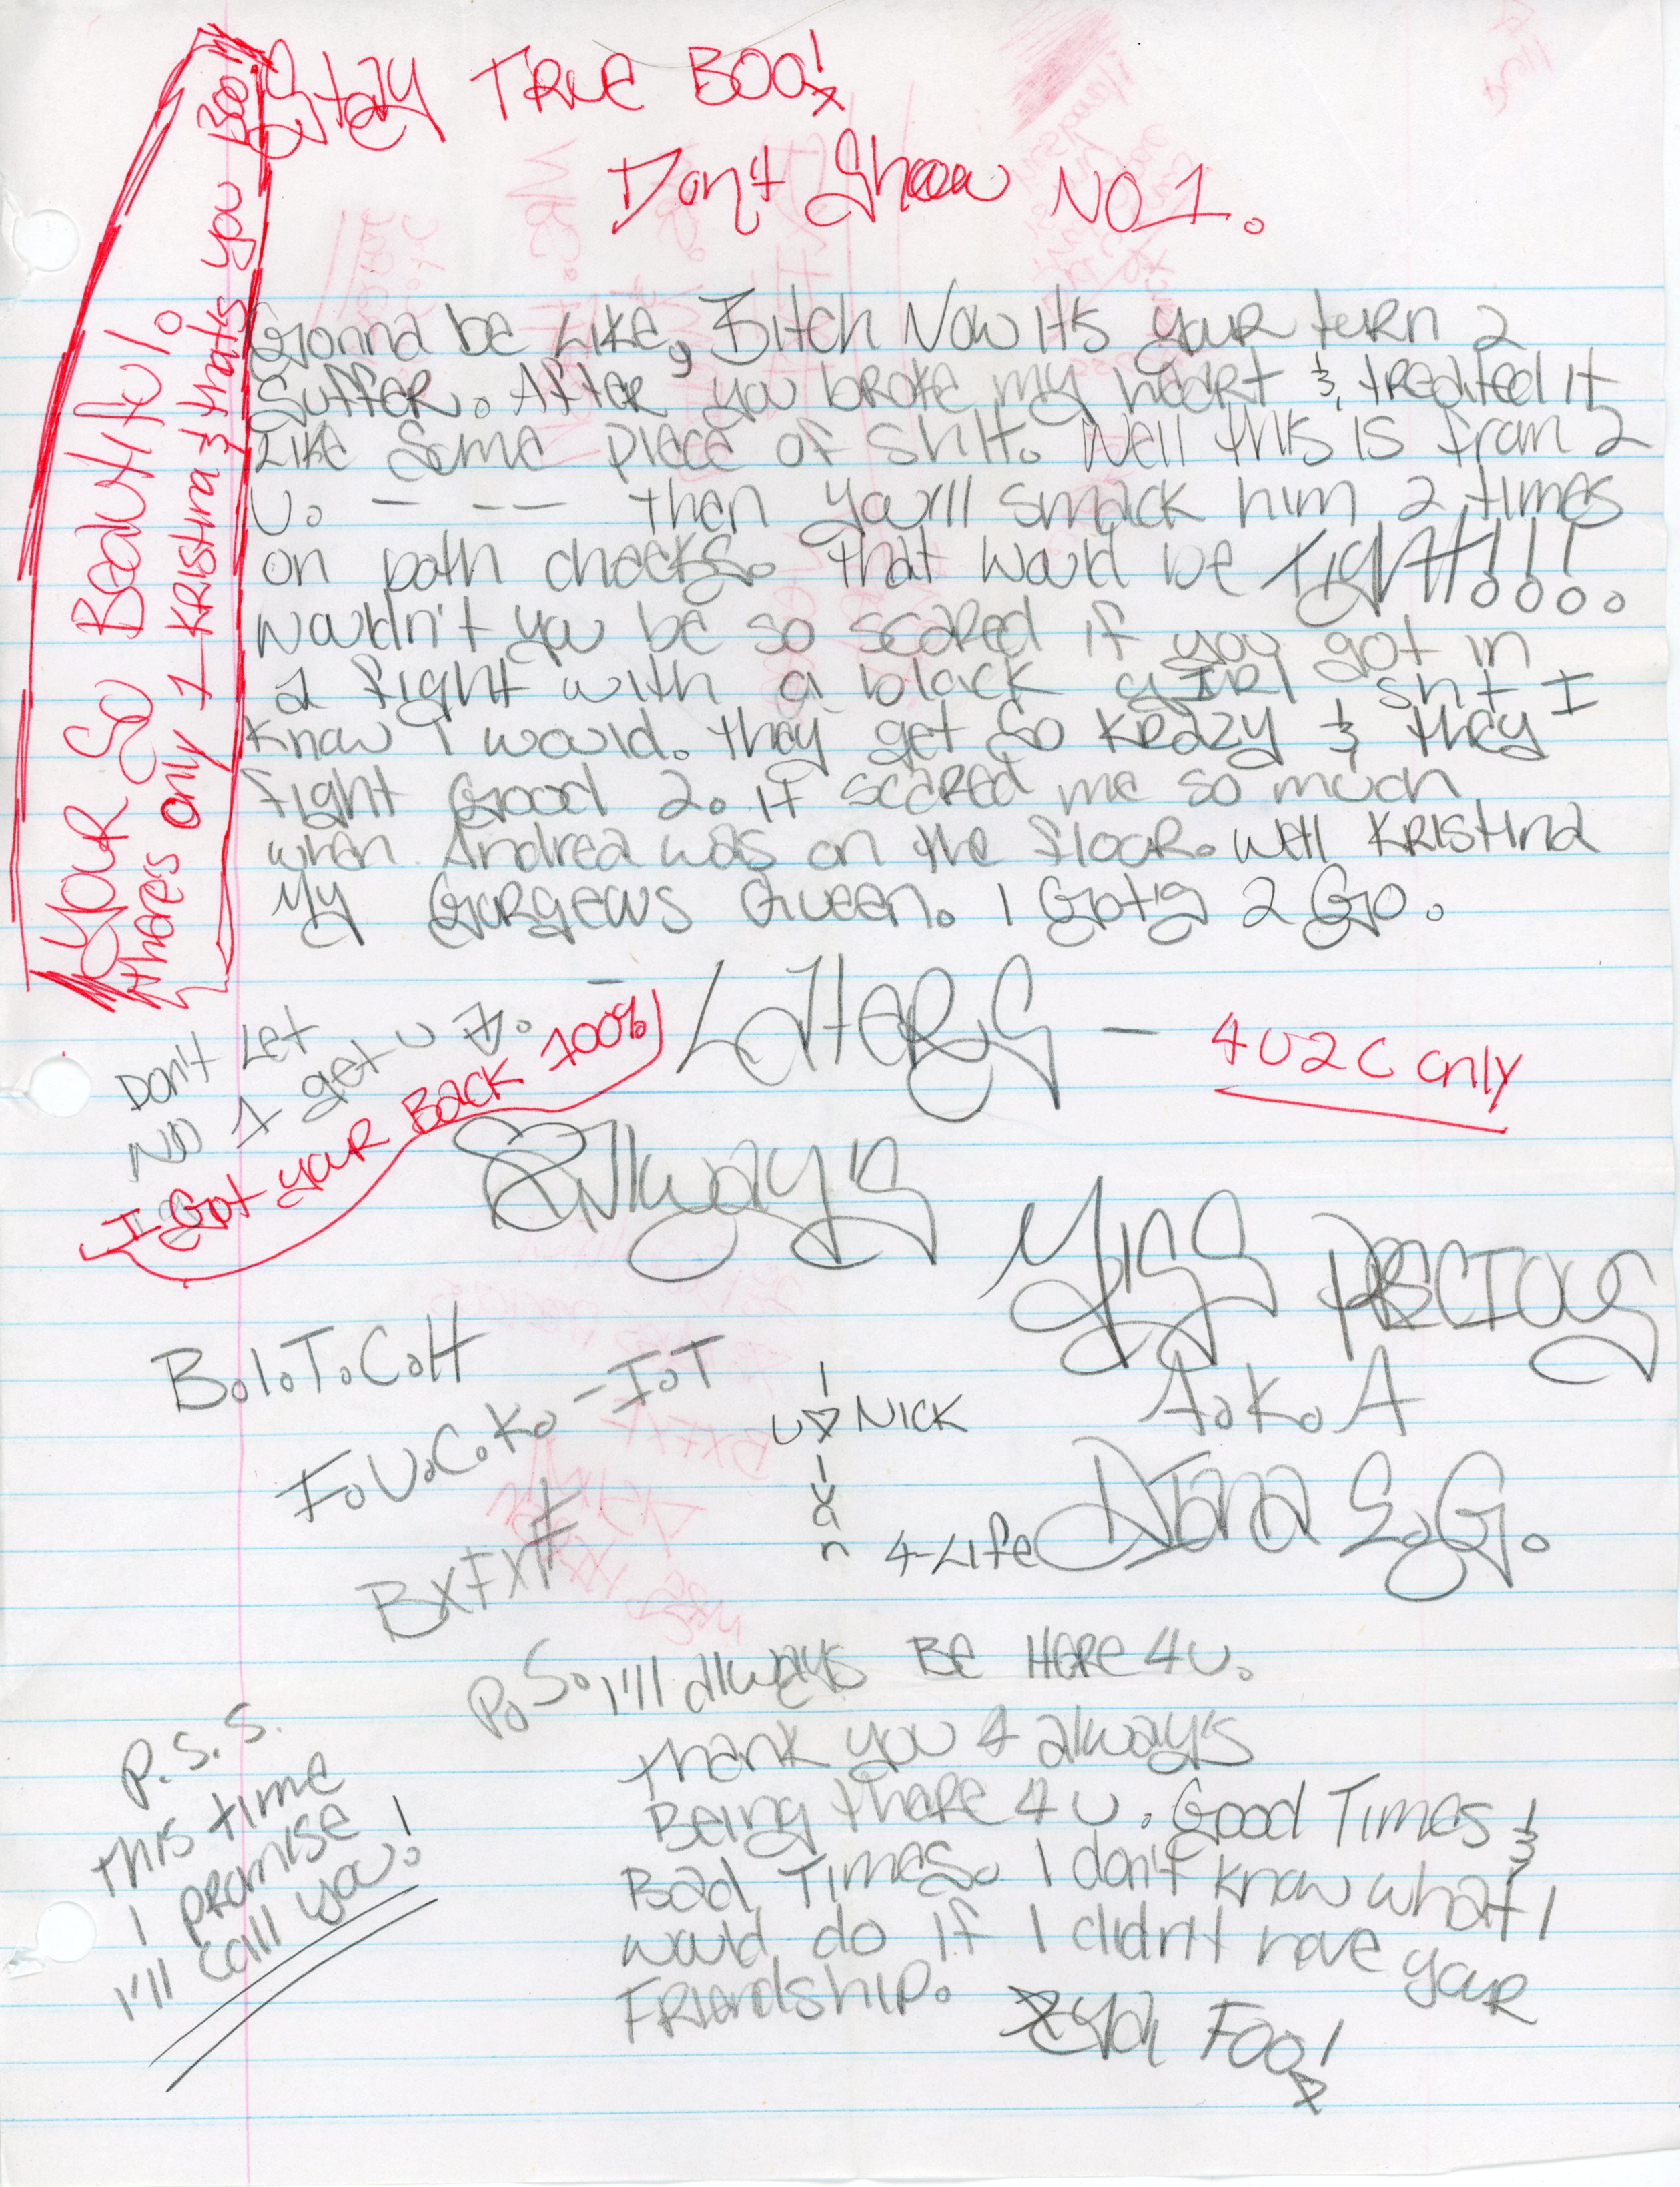 Stay TRUE BOO!
Don't Show NO 1.
YOUR SO BEAUtiful!
thares only 1 KRIStina & thats you Boo!!
Gonna be LIKE, Bitch Now it's your turn 2
SuffeR. AfteR you broke my heart & treated it
LIKE Some piece of shit. Well this is from 2
U. - - -- then you'll smack him 2 times
on both cheeks. that would be tight!!!!
wouldn't you be so scared if you got in
a fight with a black girl shit I
know I would. they get so KRAZY & they
fight Good 2. it scared me so much
when Andrea was on the flooR. Well KRIStina
My Gorgeous Queen. I Gotg 2 Go.
- LAtERS -
4 U 2 C only
Don't Let
NO 1 get U
I Got your Back 100%
Always
Miss PRECIOUS
A.K.A
Diana E.G.
B.I.T.C.H
F.U.C.K. - I.T
BxFxF
I
U NICK
I
v
a
n
4-Life
P.S. I'll always BE HERE 4 U.
thank you 4 always
Being thare 4 U. Good Times &
Bad Times. I don't know what I
would do if I didn't have your
FRIendship.
Ya FOO!
P.S.S.
this time
I promise
I'll call you!